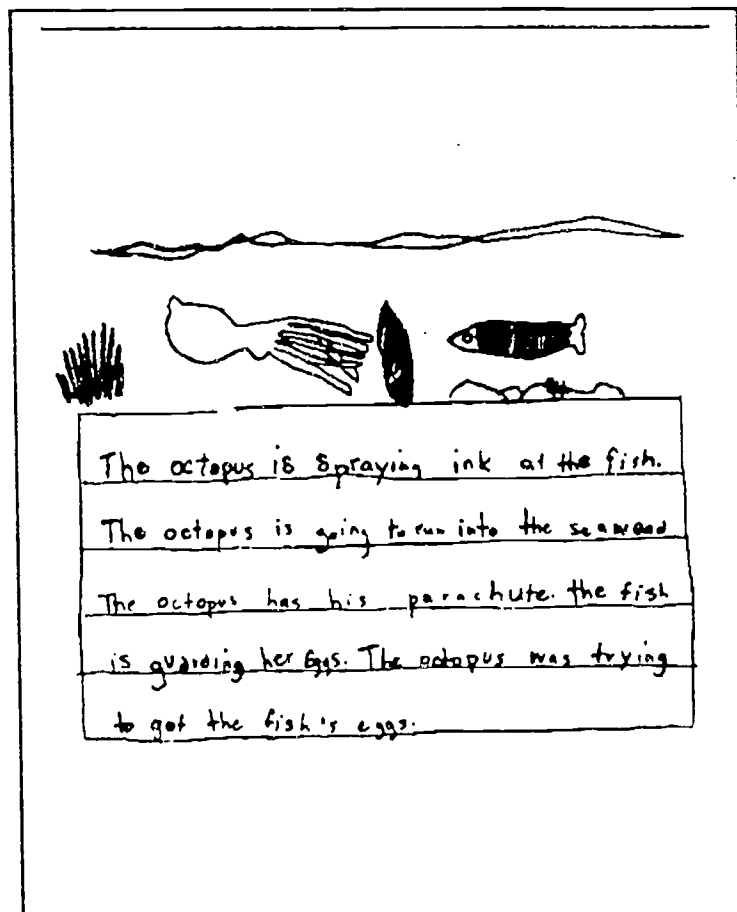 The octopus is spraying ink at the fish.
The octopus is going to run into the seaweed
The octopus has his parachute. the fish
is guarding her Eggs. The octopus was trying
to get the fish's eggs.